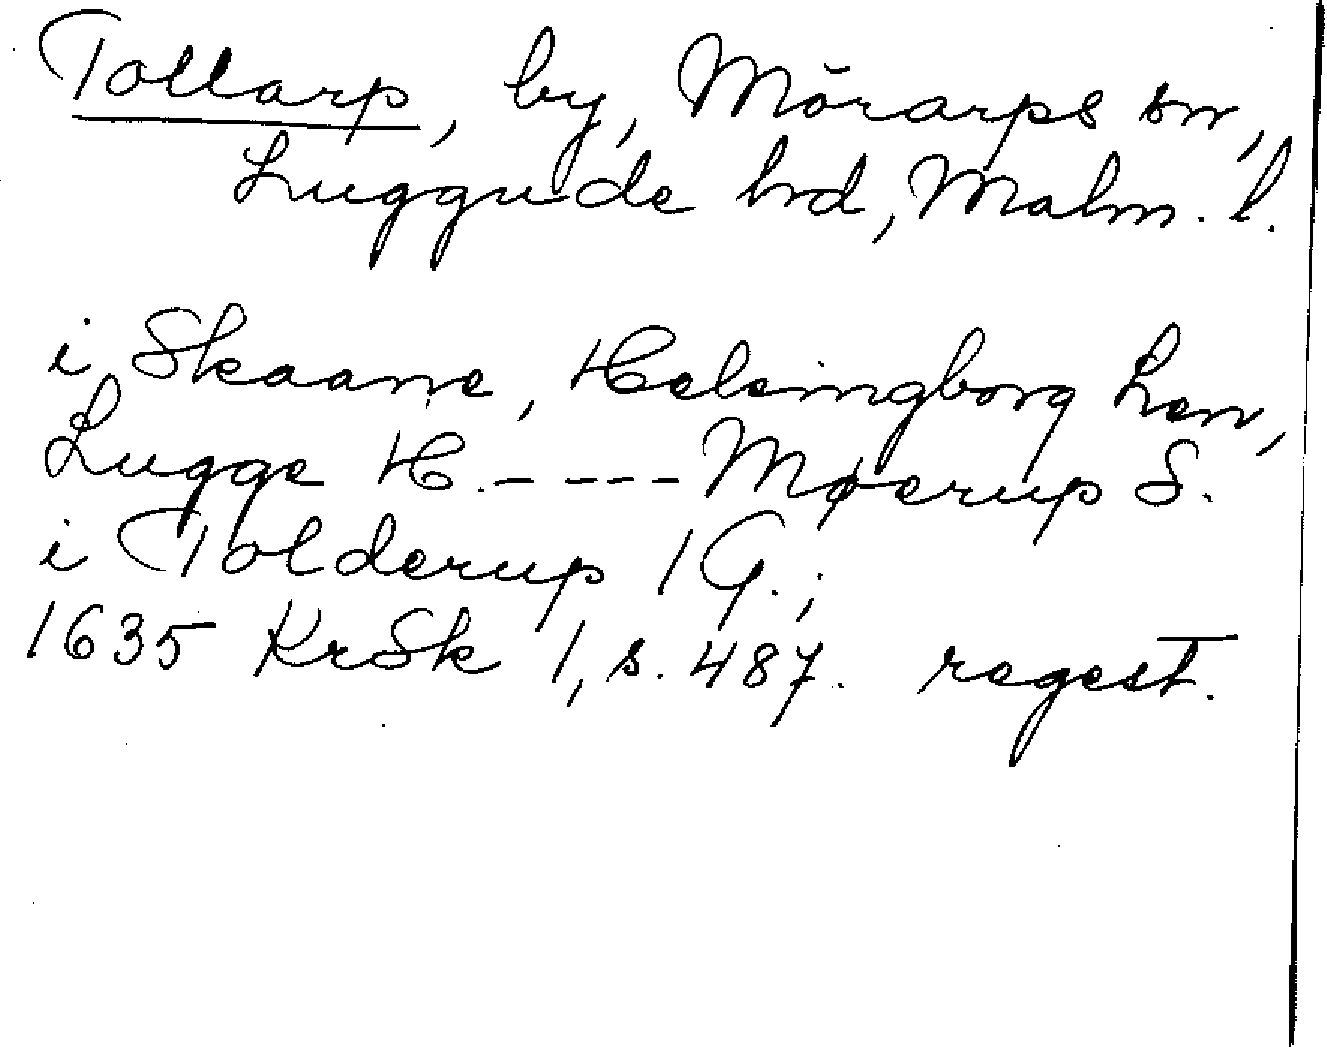 Tollarp, by, Mörarps sn,
Luggude hrd, Malm. l.
i Skaane, Helsingborg Len,
Lugge H. - - - - Møerup S.
i Tolderup 1 G.;
1635 KrSk 1, s. 487. regest.